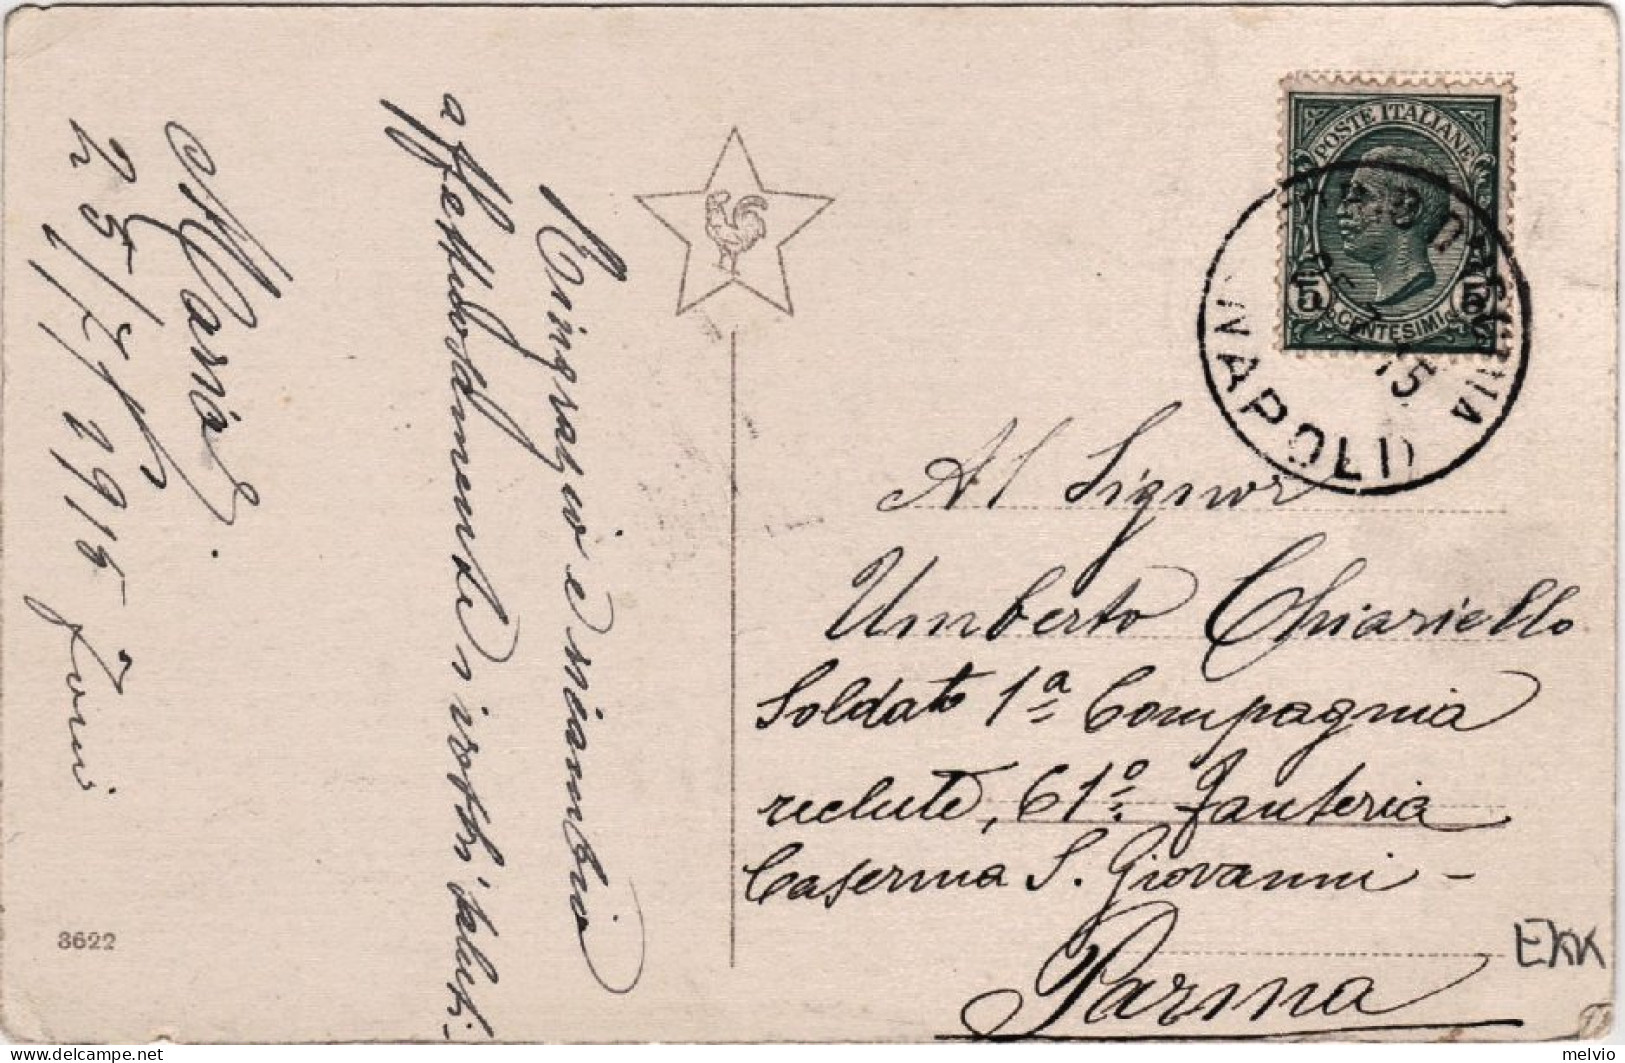 Ringrazio e ricambio
affettuosamente i vostri saluti.
Maria
25/7/1915
3622
POSTE ITALIANE
5 5
CENTESIMI
15
NAPOLI
Al Signor
Umberto Chiariello
Soldato 1ª Compagnia
reclute, 61º Fanteria
Caserma S. Giovanni -
Parma
EKK
melvio